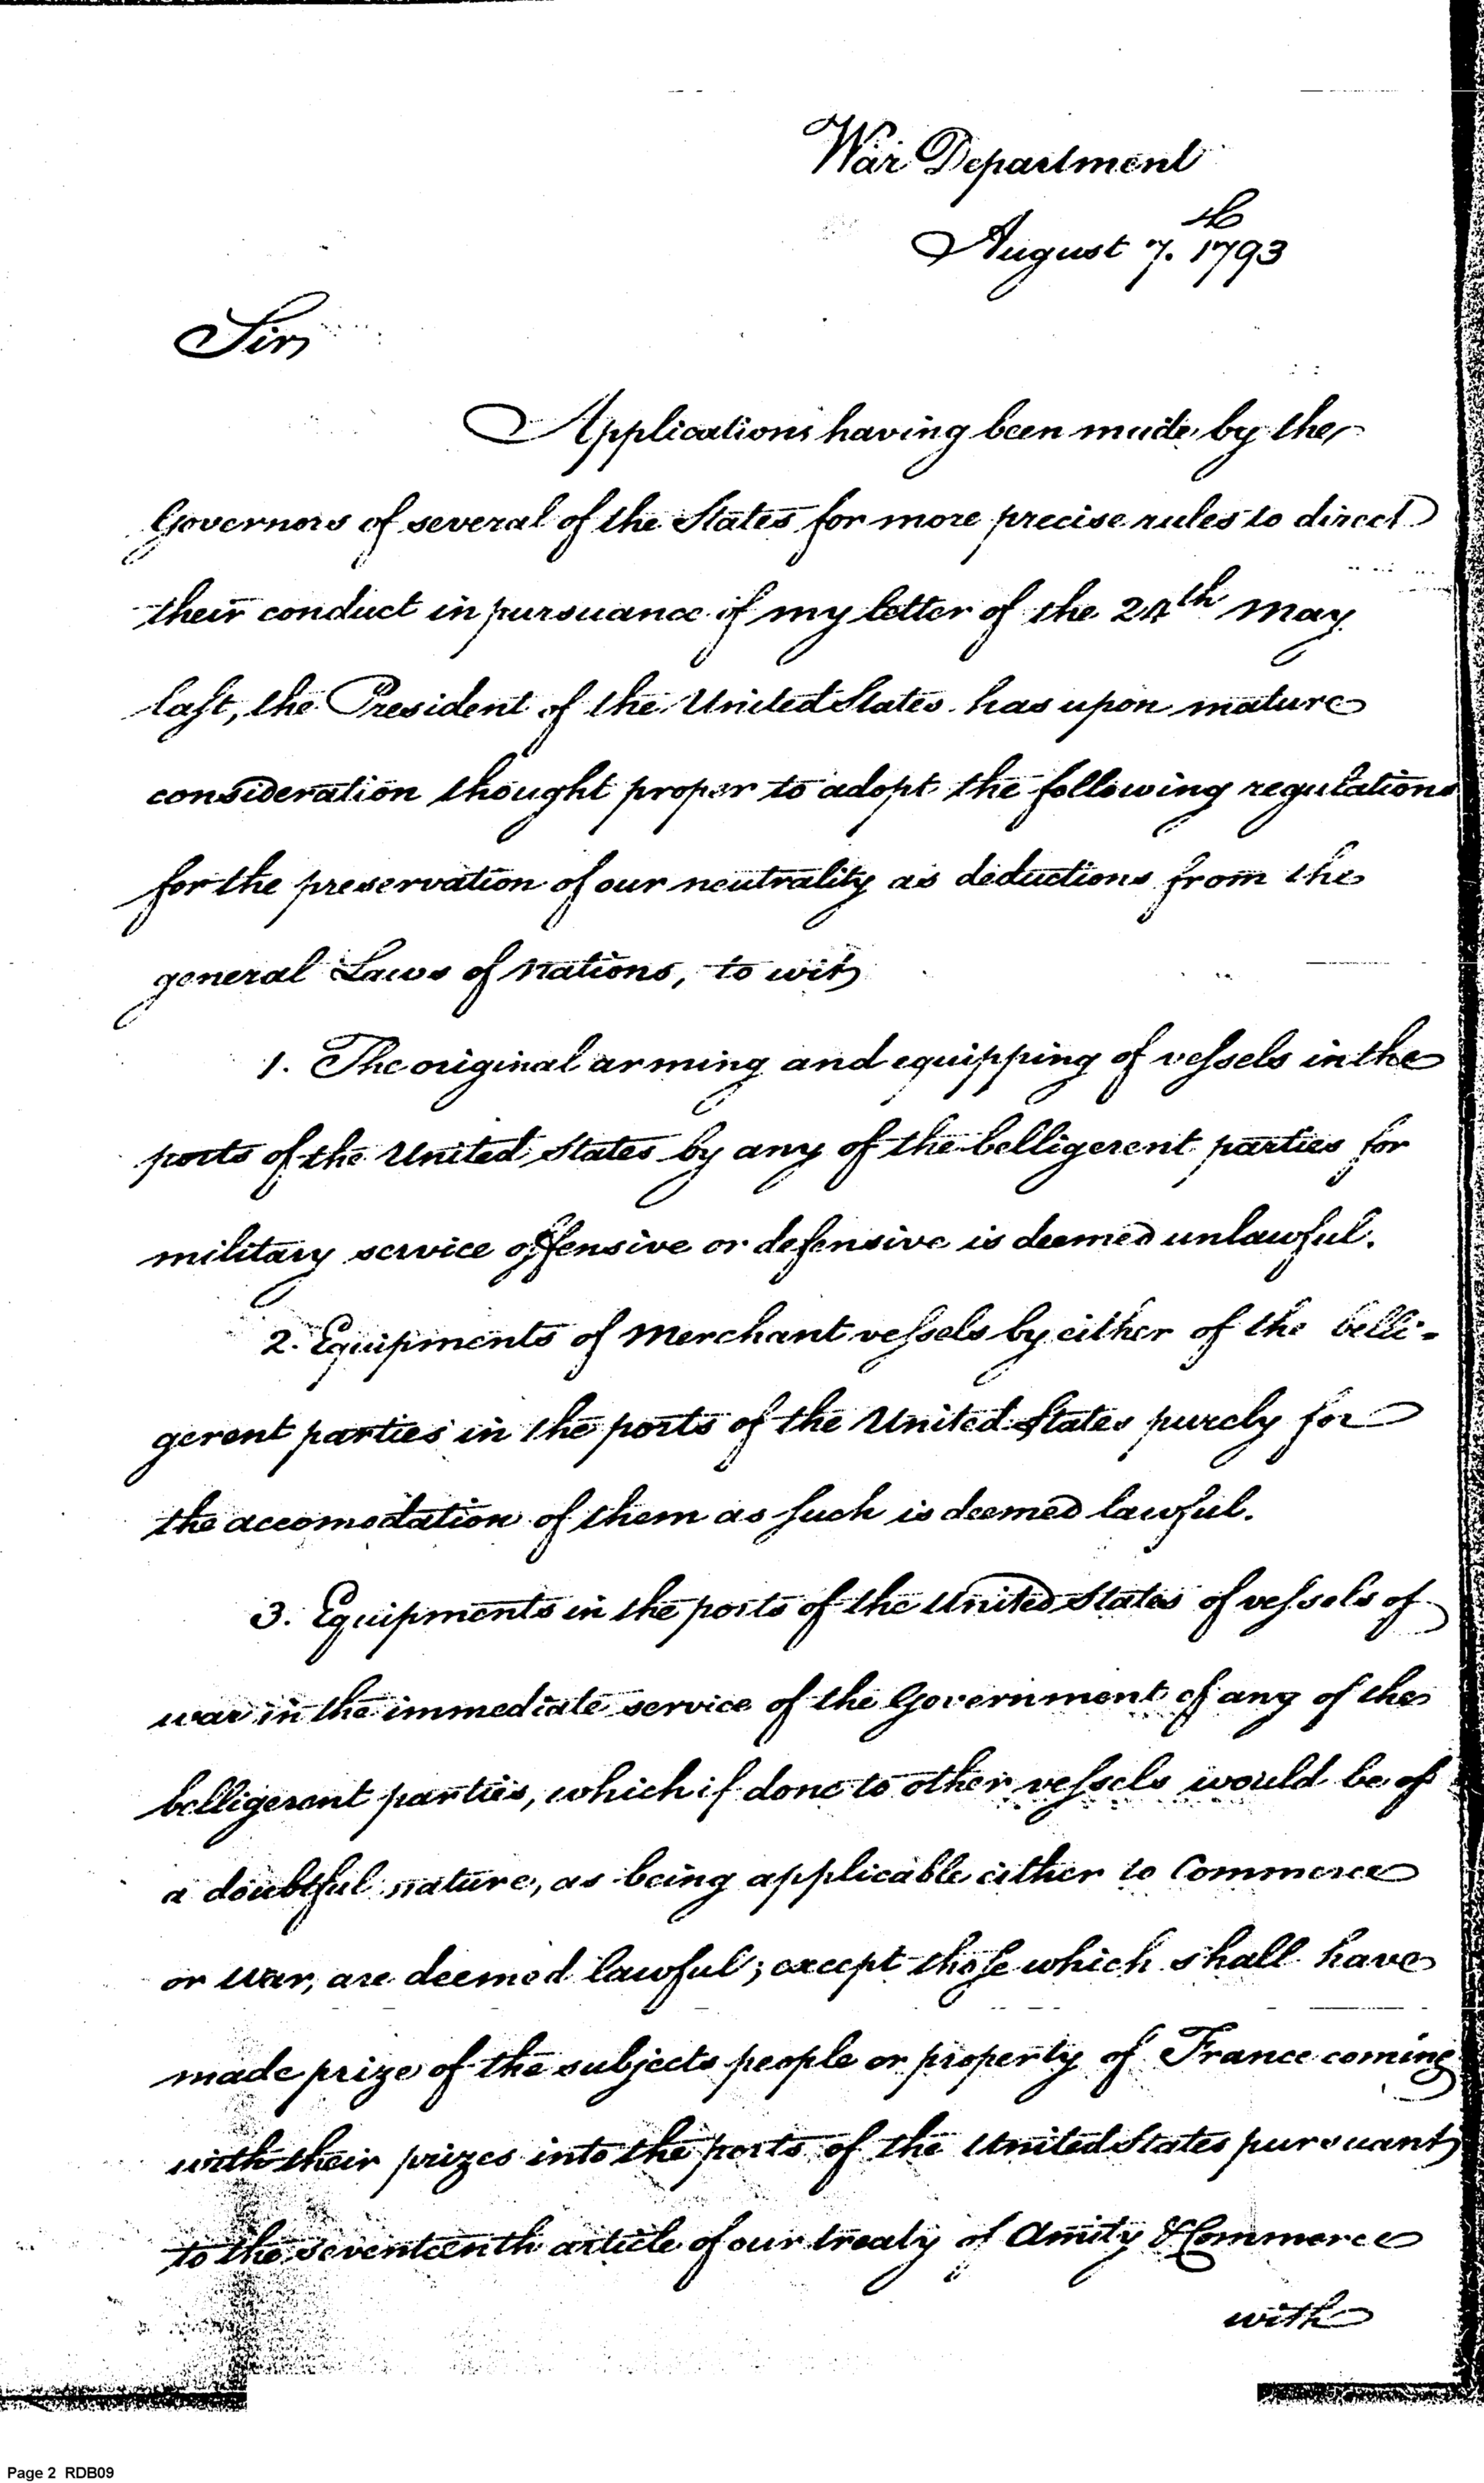 War Department
August 7.th 1793
Sir
Applications having been made by the
Governors of several of the States for more precise rules to direct
their conduct in pursuance of my letter of the 24th May
last, the President of the United States has upon mature
consideration thought proper to adopt the following regulations
for the preservation of our neutrality as deductions from the
general Laws of Nations, to wit
1. The original arming and equipping of vessels in the
ports of the United States by any of the belligerent parties for
military service offensive or defensive is deemed unlawful.
2. Equipments of Merchant vessels by either of the belli-
gerent parties in the ports of the United States purely for
the accomodation of them as such is deemed lawful.
3. Equipments in the ports of the United States of vessels of
war in the immediate service of the Government of any of the
belligerent parties, which if done to other vessels would be of
a doubtful nature, as being applicable either to Commerce
or War, are deemed lawful; except those which shall have
made prize of the subjects people or property of France coming
with their prizes into the ports of the United States pursuant
to the seventeenth article of our treaty of Amity & Commerce
with
Page 2 RDB09